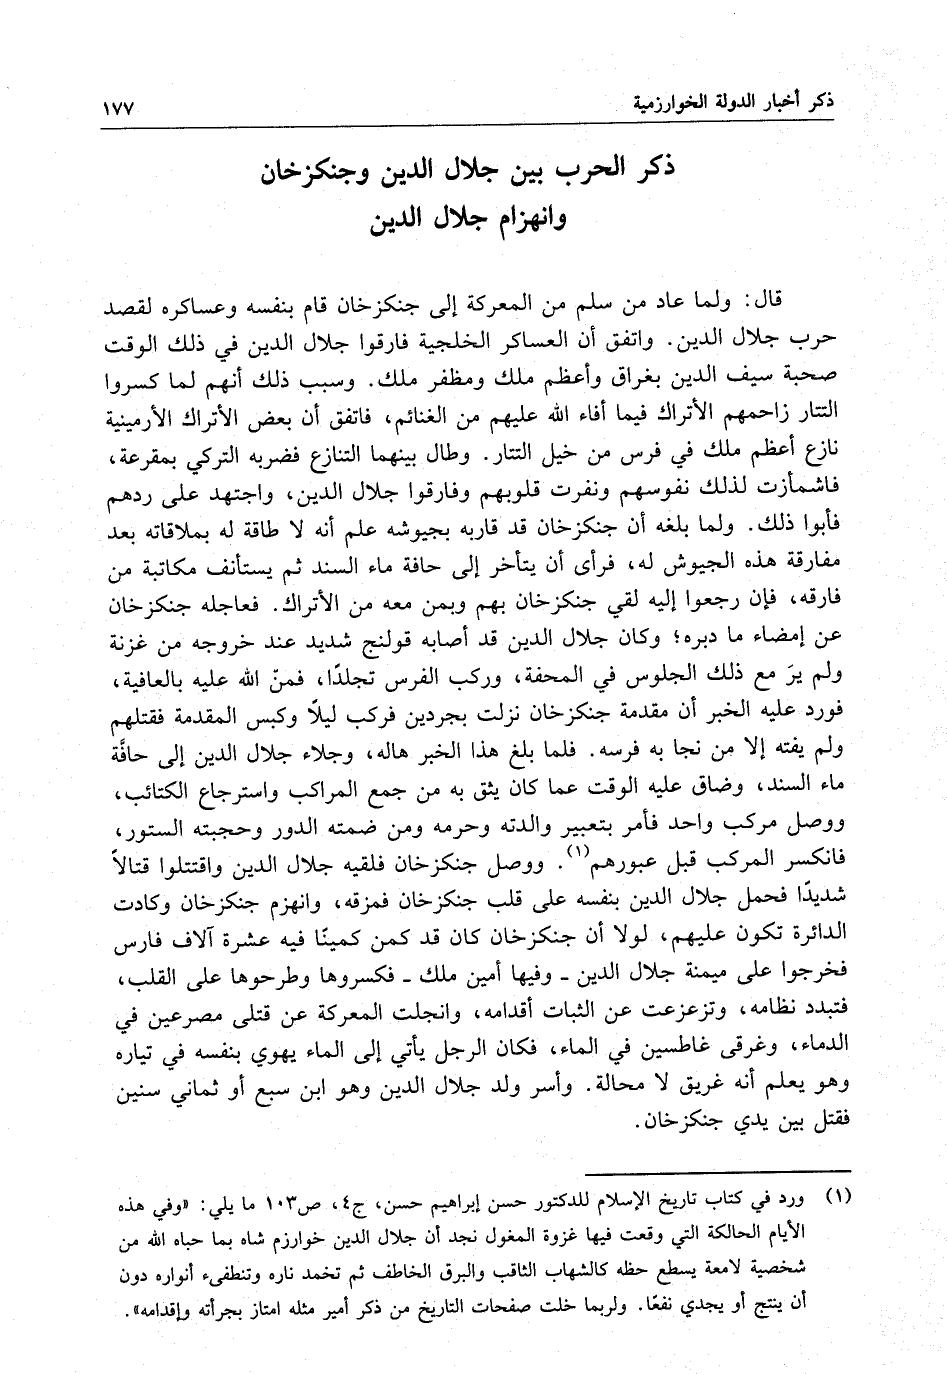 ذكر أخبار الدولة الخوارزمية ١٧٧
ذكر الحرب بين جلال الدين وجنكزخان
وانهزام جلال الدين
قال: ولما عاد من سلم من المعركة إلى جنكزخان قام بنفسه وعساكره لقصد
حرب جلال الدين. واتفق أن العساكر الخلجية فارقوا جلال الدين في ذلك الوقت
صحبة سيف الدين بغراق وأعظم ملك ومظفر ملك. وسبب ذلك أنهم لما كسروا
التتار زاحمهم الأتراك فيما أفاء الله عليهم من الغنائم، فاتفق أن بعض الأتراك الأرمينية
نازع أعظم ملك في فرس من خيل التتار. وطال بينهما التنازع فضربه التركي بمقرعة،
فاشمأزت لذلك نفوسهم ونفرت قلوبهم وفارقوا جلال الدين، واجتهد على ردهم
فأبوا ذلك. ولما بلغه أن جنكزخان قد قاربه بجيوشه علم أنه لا طاقة له بملاقاته بعد
مفارقة هذه الجيوش له، فرأى أن يتأخر إلى حافة ماء السند ثم يستأنف مكاتبة من
فارقه، فإن رجعوا إليه لقي جنكزخان بهم وبمن معه من الأتراك. فعاجله جنكزخان
عن إمضاء ما دبره؛ وكان جلال الدين قد أصابه قولنج شديد عند خروجه من غزنة
ولم يرَ مع ذلك الجلوس في المحفة، وركب الفرس تجلدًا، فمنّ الله عليه بالعافية،
فورد عليه الخبر أن مقدمة جنكزخان نزلت بجردين فركب ليلًا وكبس المقدمة فقتلهم
ولم يفته إلا من نجا به فرسه. فلما بلغ هذا الخبر هاله، وجلاء جلال الدين إلى حافَّة
ماء السند، وضاق عليه الوقت عما كان يثق به من جمع المراكب واسترجاع الكتائب،
ووصل مركب واحد فأمر بتعبير والدته وحرمه ومن ضمته الدور وحجبته الستور،
فانكسر المركب قبل عبورهم(١). ووصل جنكزخان فلقيه جلال الدين واقتتلوا قتالاً
شديدًا فحمل جلال الدين بنفسه على قلب جنكزخان فمزقه، وانهزم جنكزخان وكادت
الدائرة تكون عليهم، لولا أن جنكزخان كان قد كمن كمينًا فيه عشرة آلاف فارس
فخرجوا على ميمنة جلال الدين - وفيها أمين ملك - فكسروها وطرحوها على القلب،
فتبدد نظامه، وتزعزعت عن الثبات أقدامه، وانجلت المعركة عن قتلى مصرعين في
الدماء، وغرقى غاطسين في الماء، فكان الرجل يأتي إلى الماء يهوي بنفسه في تياره
وهو يعلم أنه غريق لا محالة. وأسر ولد جلال الدين وهو ابن سبع أو ثماني سنين
فقتل بين يدي جنكزخان.
(١) ورد في كتاب تاريخ الإسلام للدكتور حسن إبراهيم حسن، ج٤، ص١٠٣ ما يلي: «وفي هذه
الأيام الحالكة التي وقعت فيها غزوة المغول نجد أن جلال الدين خوارزم شاه بما حباه الله من
شخصية لامعة يسطع حظه كالشهاب الثاقب والبرق الخاطف ثم تخمد ناره وتنطفىء أنواره دون
أن ينتج أو يجدي نفعًا. ولربما خلت صفحات التاريخ من ذكر أمير مثله امتاز بجرأته وإقدامه».